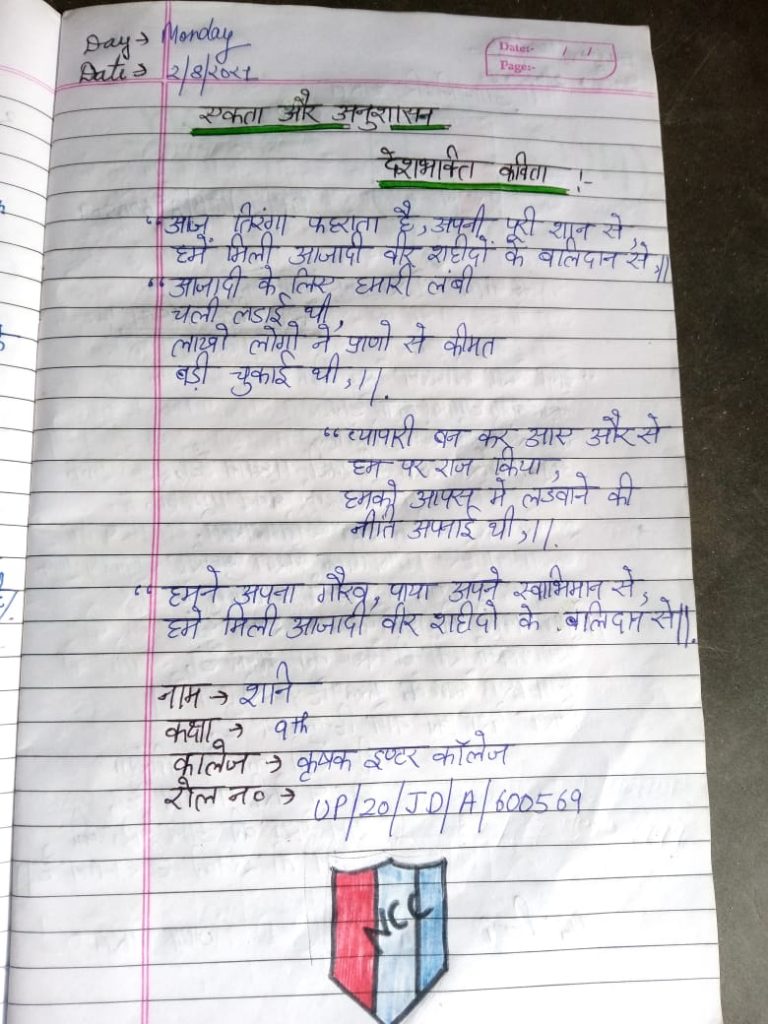 Day → Monday
Date:-
Date → 2/8/2021
Page:-
एकता और अनुशासन
देशभक्ति कविता !-
“आज तिरंगा फहराता है, अपनी पूरी शान से,
हमें मिली आजादी वीर शहीदों के बलिदान से,॥
“आजादी के लिए हमारी लंबी
चली लडाई थी,
लाखो लोगो ने प्राणो से कीमत
बड़ी चुकाई थी,।।.
“व्यापारी बन कर आए और से
हम पर राज किया,
हमको आपस मे लडवाने की
नीति अपनाई थी,।।.
“हमने अपना गौरव, पाया अपने स्वाभिमान से,
हमे मिली आजादी वीर शहीदो के बलिदान से॥.
नाम → शनि
कक्षा → 9th
कालेज → कृषक इण्टर कॉलेज
रोल न० → UP/20/JD/A/600569
NCC